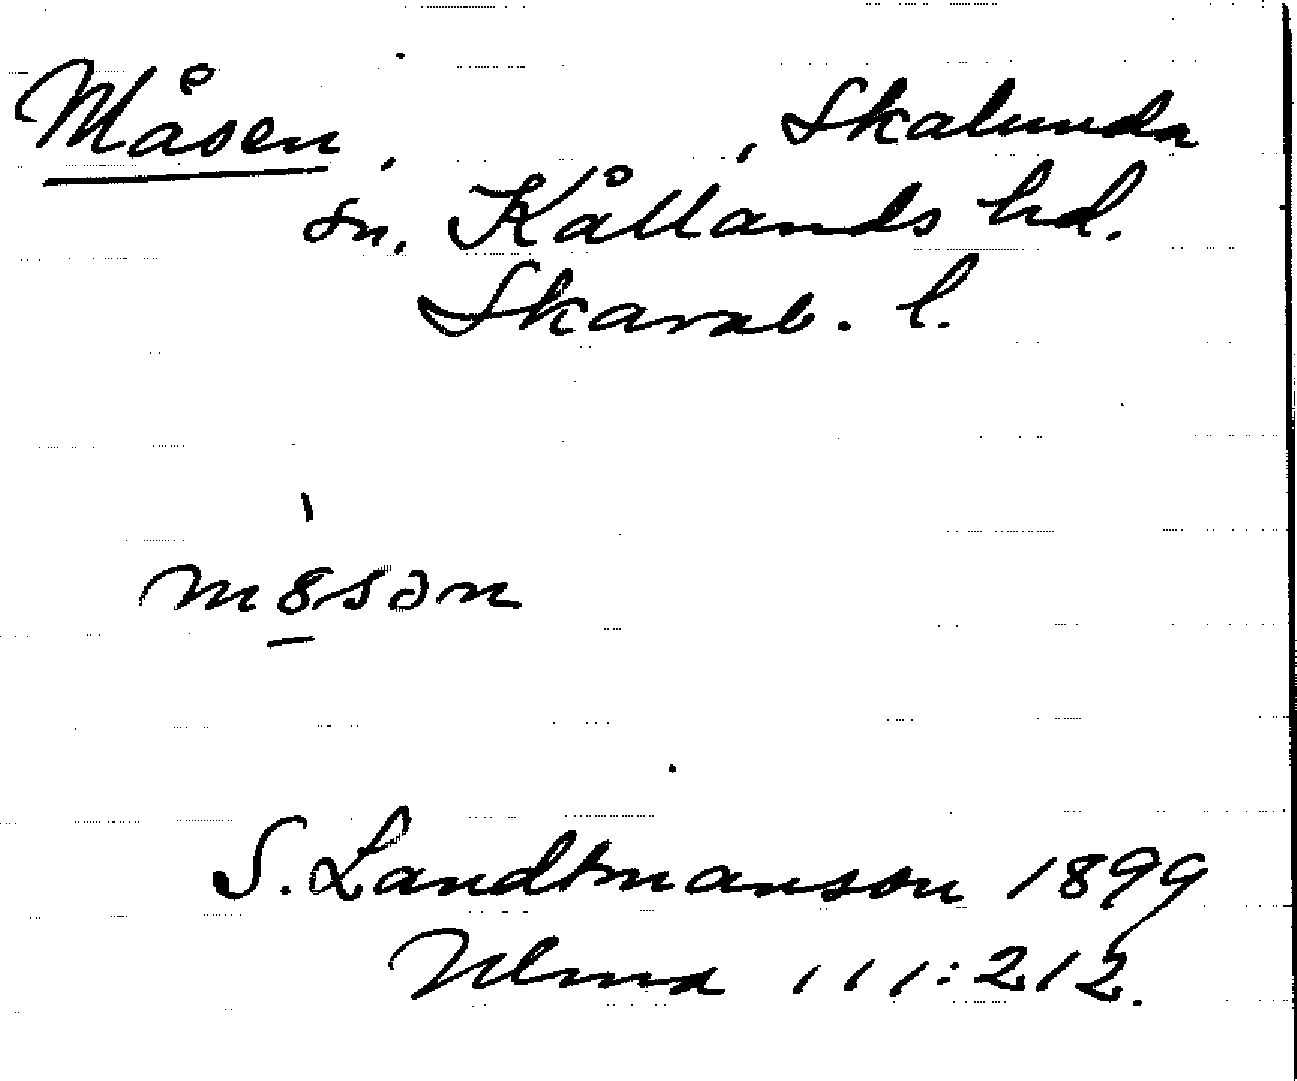 Måsen, , Skalunda
sn, Kållands hd.
Skarab. l.
S. Landtmanson 1899
Ulma 111:212.